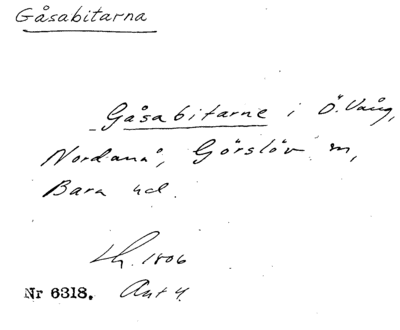 Gåsabitarna
Gåsabitarne i Ö. Vång,
Nordanå, Görslöv m,
Bara hd.
Lh. 1806
Nr 6318. Akt 4.